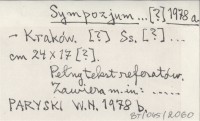 Sympozjum ... [?] 1978 a
- Kraków. [?] Ss. [?] ...
cm 24 x 17 [?].
Pełny tekst referatów.
Zawiera m.in: .....
PARYSKI W.H. 1978 b.